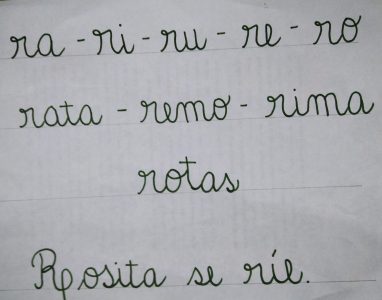 ra - ri - ru - re - ro
rata - remo - rima
rotas
Rosita se ríe.